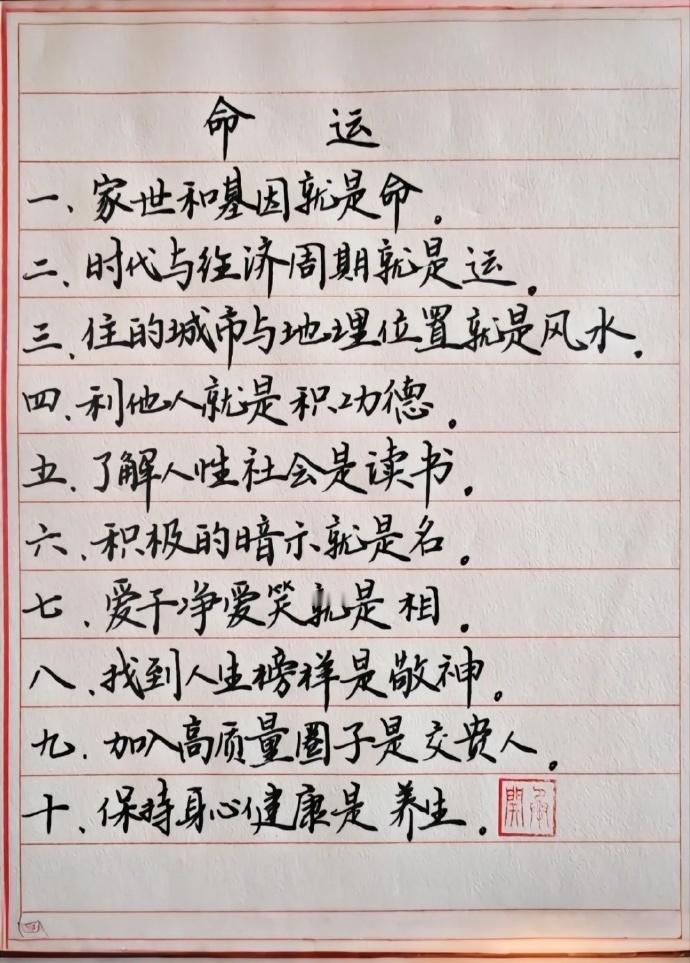 命 运
一、家世和基因就是命。
二、时代与经济周期就是运。
三、住的城市与地理位置就是风水。
四、利他人就是积功德。
五、了解人性社会是读书。
六、积极的暗示就是名。
七、爱干净爱笑就是相。
八、找到人生榜样是敬神。
九、加入高质量圈子是交费人。
十、保持身心健康是养生。